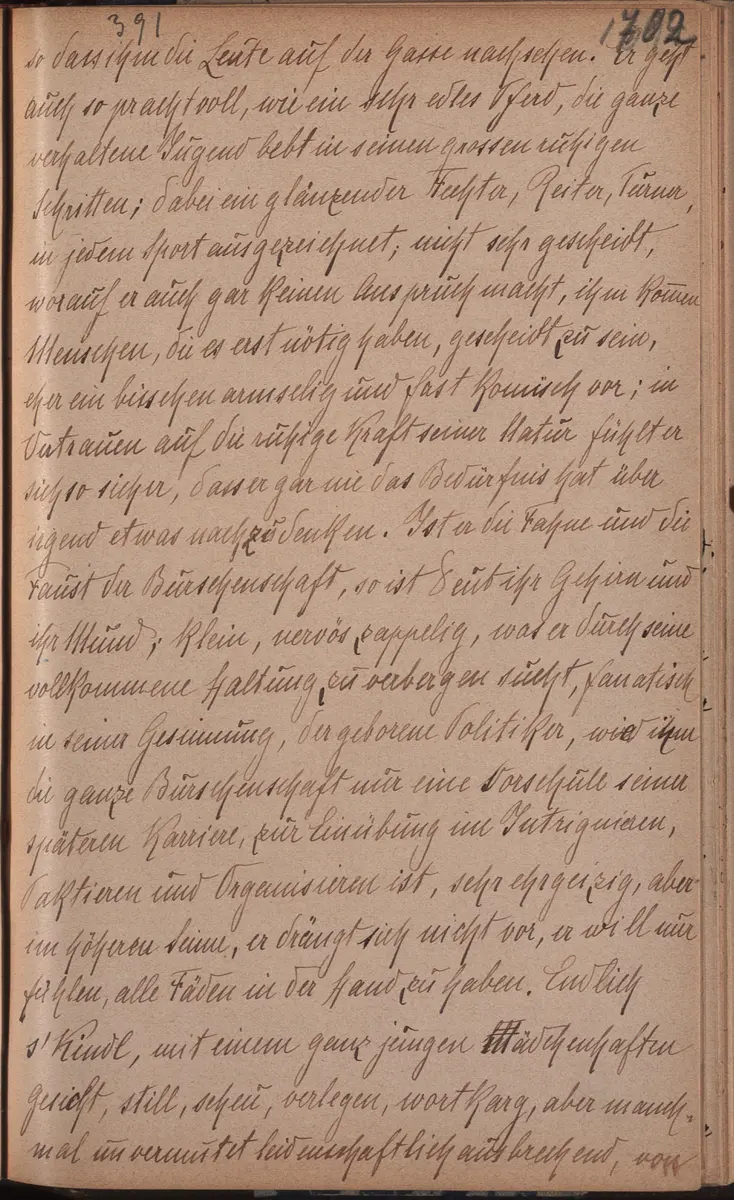 391
1702
so dass ihm die Leute auf der Gasse nachsehen. Er geht
auch so prachtvoll, wie ein sehr edles Pferd, die ganze
verhaltene Jugend bebt in seinen grossen ruhigen
Schritten; dabei ein glänzender Fechter, Reiter, Turner,
in jedem Sport ausgezeichnet; nicht sehr gescheidt,
worauf er auch gar keinen Anspruch macht, ihm kom̄en
Menschen, die es erst nötig haben, gescheidt zu sein,
eher ein bisschen armselig und fast komisch vor; in
Vertrauen auf die ruhige Kraft seiner Natur fühlt er
sich so sicher, dass er gar nie das Bedürfnis hat über
irgend etwas nachzudenken. Ist er die Fahne und die
Faust der Burschenschaft, so ist Beut ihr Gehirn und
ihr Mund; klein, nervös, zappelig, was er durch seine
vollkommene Haltung zu verbergen sucht, fanatisch
in seiner Gesinnung, der geborene Politiker, wie ihm
die ganze Burschenschaft nur eine Vorschule seiner
späteren Karriere, zur Einübung im Intriguieren,
Paktieren und Organisieren ist, sehr ehrgeizig, aber
im höheren Sinne, er drängt sich nicht vor, er will nur
fühlen, alle Fäden in der Hand zu haben. Endlich
s' Kindl, mit einem ganz jungen mädchenhaften
Gesicht, still, scheu, verlegen, wortkarg, aber manch-
mal unvermutet leidenschaftlich ausbrechend, von